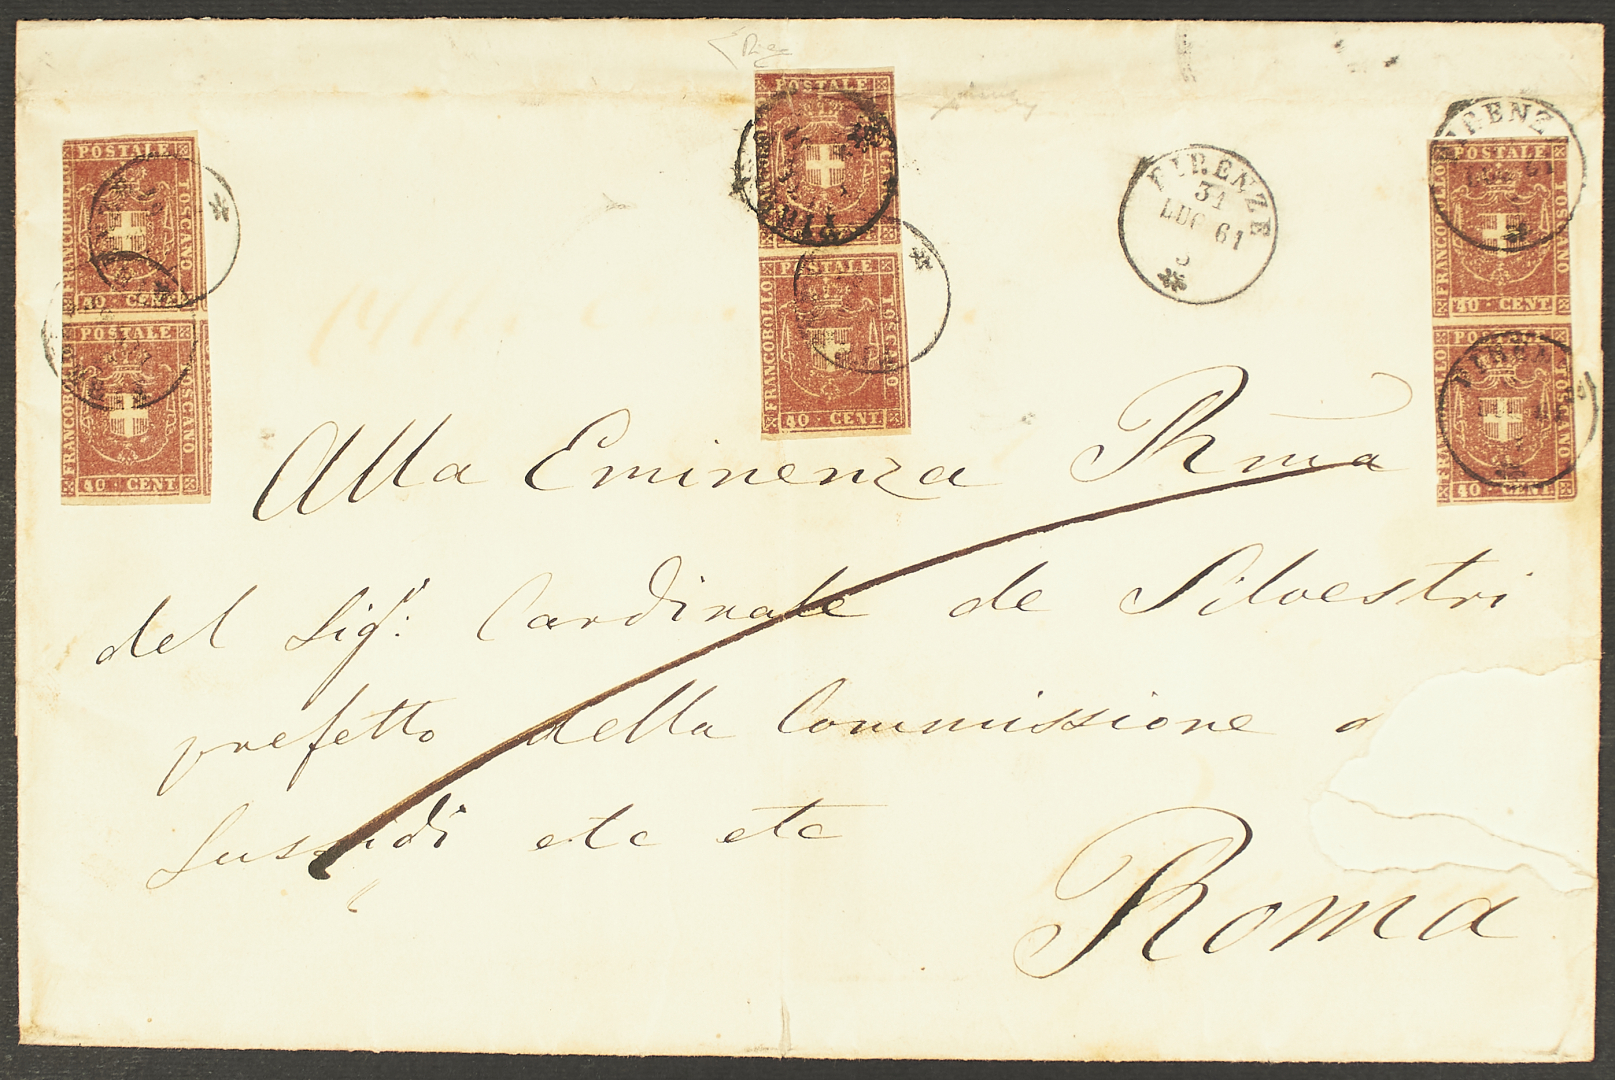 POSTALE
FRANCOBOLLO
TOSCANO
40 CENT
POSTALE
FRANCOBOLLO
TOSCANO
40 CENT
POSTALE
POSTALE
FRANCOBOLLO
TOSCANO
40 CENT
FIRENZE
31
LUG 61
FIRENZE
LUG 61
POSTALE
FRANCOBOLLO
TOSCANO
40 CENT
40 CENT
Alla Eminenza Rma
del Sigr: Cardinale de Silvestri
prefetto della Commissione
Sussidi etc etc
Roma